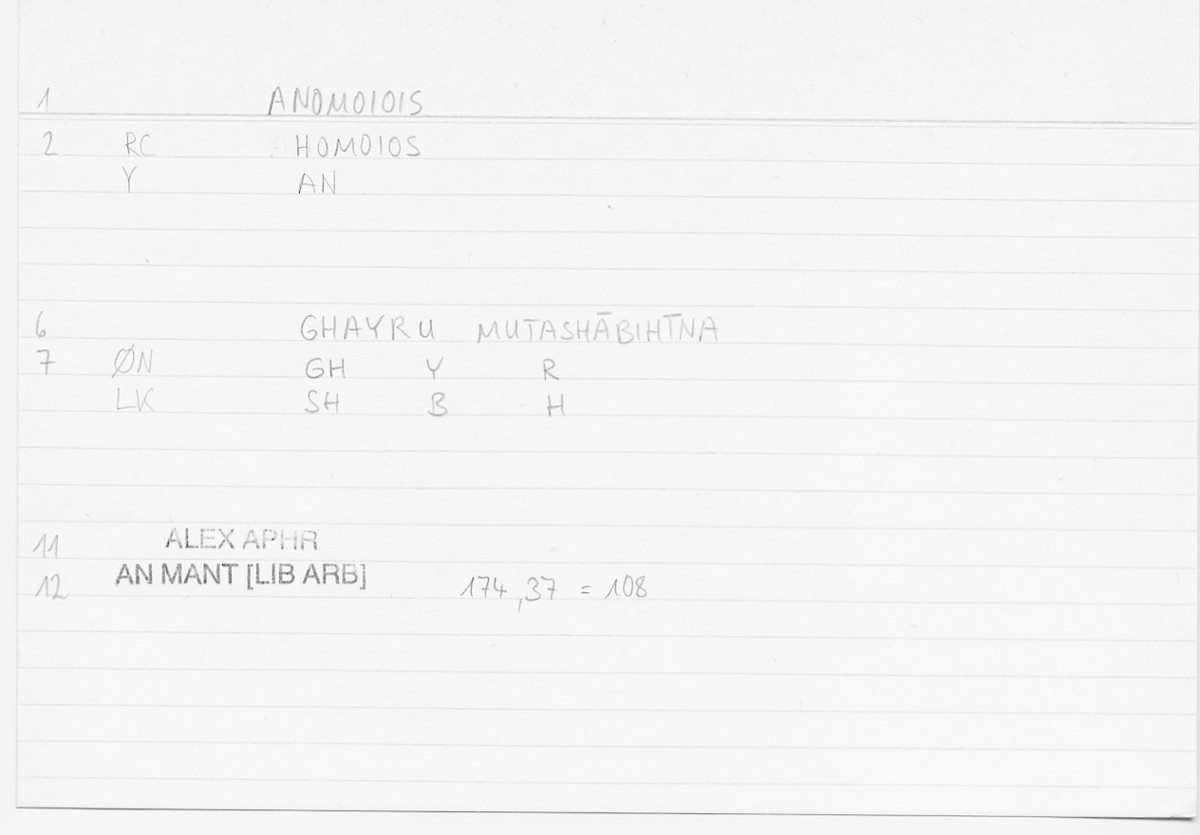 1 ANOMOIOIS
2 RC HOMOIOS
Y AN
6 GHAYRU MUTASHĀBIHĪNA
7 ØN GH Y R
LK SH B H
11 ALEX APHR
12 AN MANT [LIB ARB] 174,37 = 108